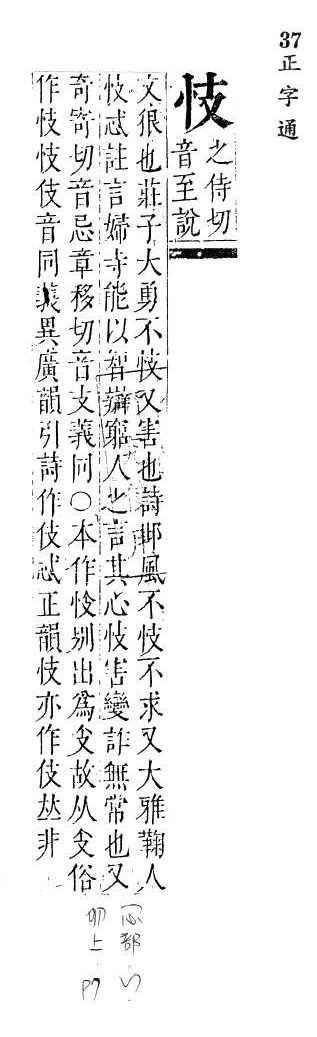 37正字通
忮
之侍切
音至說
文很也莊子大勇不忮又害也詩邶風不忮不求又大雅鞫人
忮忒註言婦寺能以智辯窮人之言其心忮害變詐無常也又
奇寄切音忌章移切音支義同○本作忮別出爲支故从支俗
作忮忮伎音同義異廣韻引詩作伎忒正韻忮亦作伎𠀤非
心部
卯上